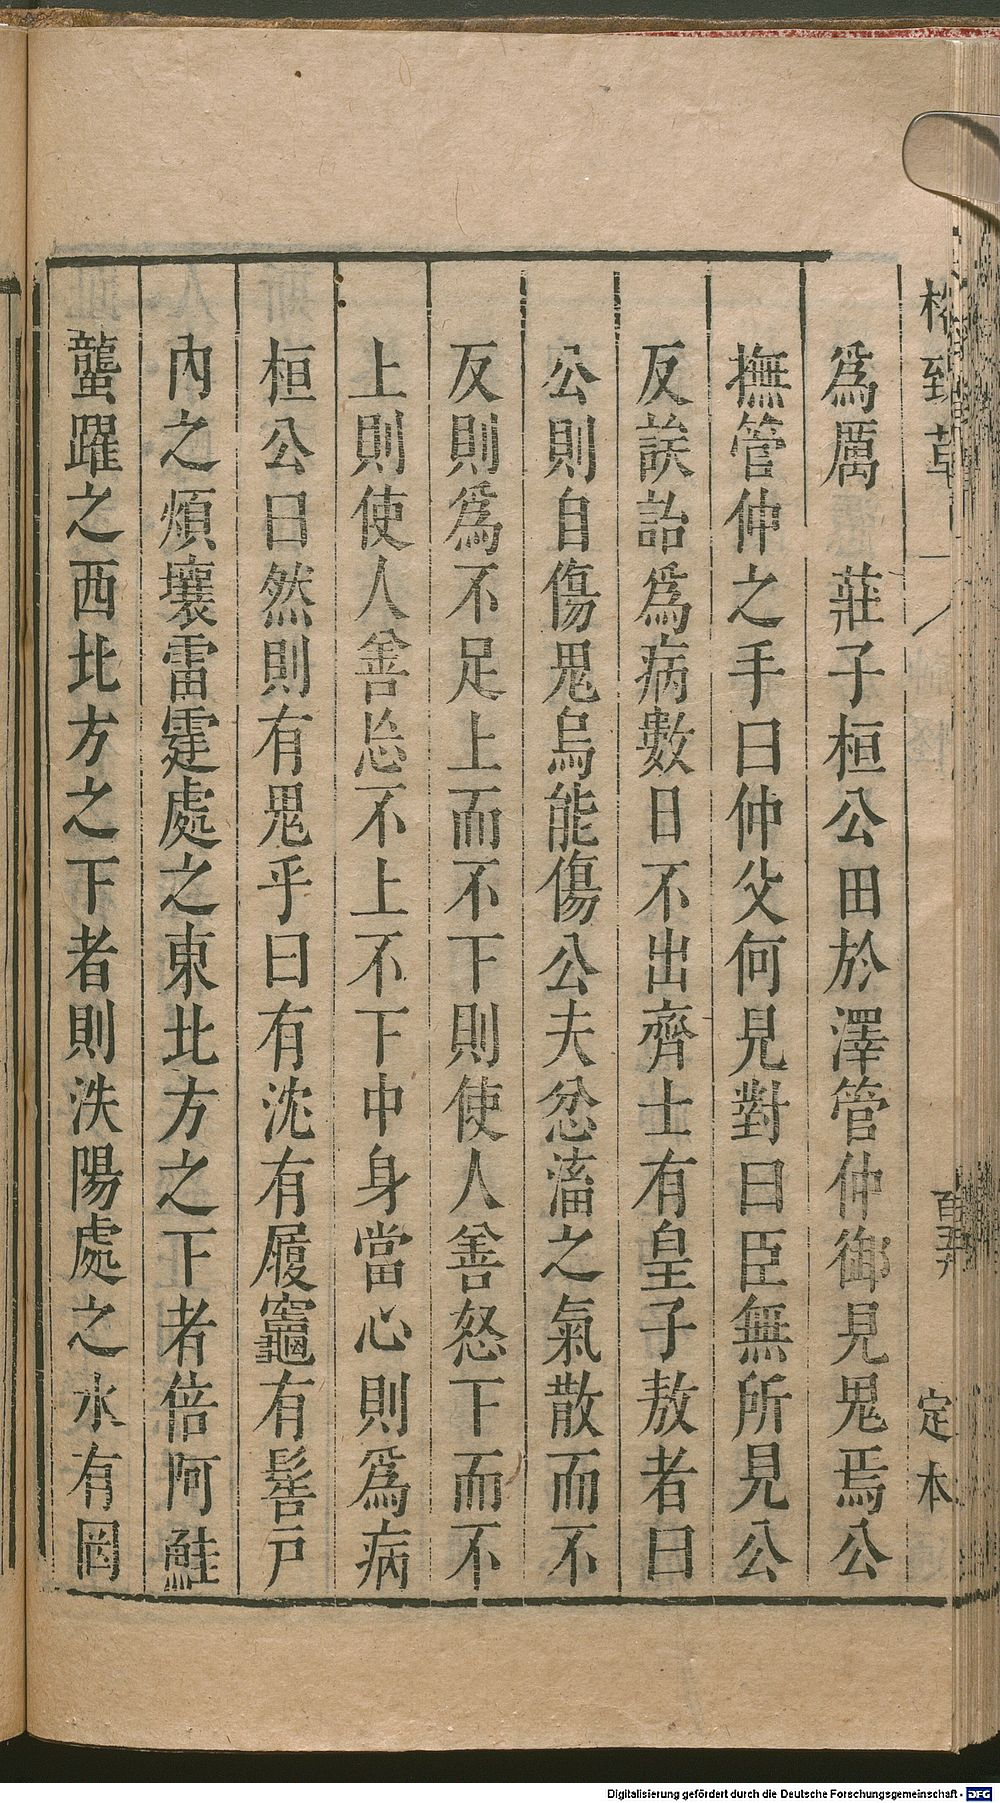 格致草
百五
定本
爲厲　莊子桓公田於澤管仲御見鬼焉公
撫管仲之手曰仲父何見對曰臣無所見公
反誒詒爲病數日不出齊士有皇子敖者曰
公則自傷鬼烏能傷公夫忿滀之氣散而不
反則爲不足上而不下則使人善怒下而不
上則使人善忘不上不下中身當心則爲病
桓公曰然則有鬼乎曰有沈有履竈有髻戶
內之煩壤雷霆處之東北方之下者倍阿鮭
蠪躍之西北方之下者則泆陽處之水有罔
Digitalisierung gefördert durch die Deutsche Forschungsgemeinschaft - DFG